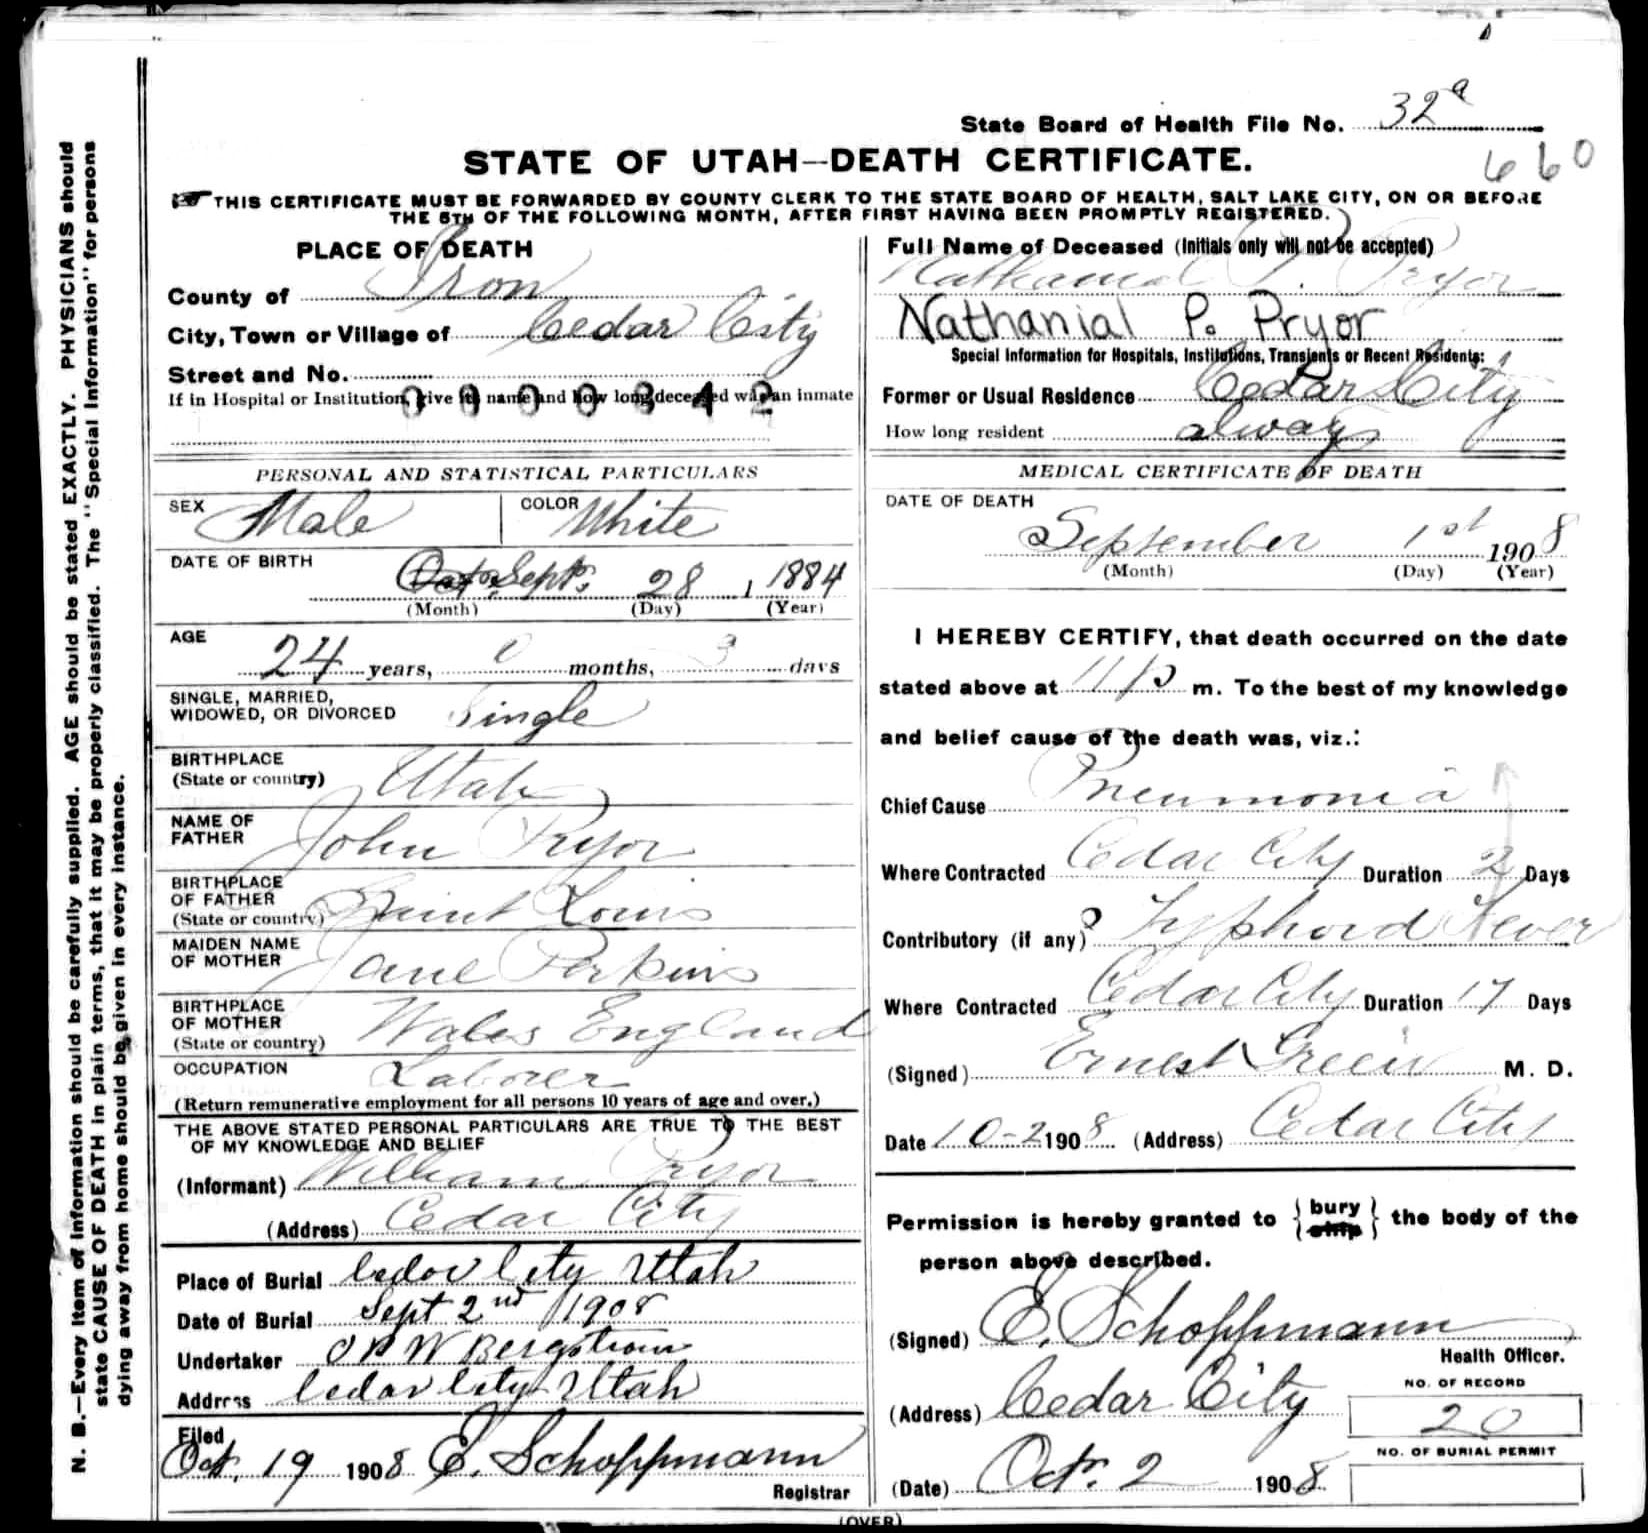 State Board of Health File No. 32a
660
STATE OF UTAH—DEATH CERTIFICATE.
THIS CERTIFICATE MUST BE FORWARDED BY COUNTY CLERK TO THE STATE BOARD OF HEALTH, SALT LAKE CITY, ON OR BEFORE
THE 5TH OF THE FOLLOWING MONTH, AFTER FIRST HAVING BEEN PROMPTLY REGISTERED.
N. B.—Every item of information should be carefully supplied. AGE should be stated EXACTLY. PHYSICIANS should
state CAUSE OF DEATH in plain terms, that it may be properly classified. The "Special Information" for persons
dying away from home should be given in every instance.
PLACE OF DEATH
County of Iron
City, Town or Village of Cedar City
Street and No.
If in Hospital or Institution, give its name and how long deceased was an inmate
PERSONAL AND STATISTICAL PARTICULARS
SEX Male COLOR White
DATE OF BIRTH Sept. 28, 1884
(Month) (Day) (Year)
AGE 24 years, 0 months, 3 days
SINGLE, MARRIED,
WIDOWED, OR DIVORCED Single
BIRTHPLACE
(State or country) Utah
NAME OF
FATHER John Pryor
BIRTHPLACE
OF FATHER
(State or country) Saint Louis
MAIDEN NAME
OF MOTHER Jane Perkins
BIRTHPLACE
OF MOTHER
(State or country) Wales England
OCCUPATION Laborer
(Return remunerative employment for all persons 10 years of age and over.)
THE ABOVE STATED PERSONAL PARTICULARS ARE TRUE TO THE BEST
OF MY KNOWLEDGE AND BELIEF
(Informant) William Pryor
(Address) Cedar City
Place of Burial Cedar City Utah
Date of Burial Sept 2nd 1908
Undertaker W Bergstrom
Address Cedar City Utah
Filed
Oct. 19 1908 E. Schoppmann
Registrar
Full Name of Deceased (Initials only will not be accepted)
Nathanial P. Pryor
Nathanial P. Pryor
Special Information for Hospitals, Institutions, Transients or Recent Residents:
Former or Usual Residence Cedar City
How long resident always
MEDICAL CERTIFICATE OF DEATH
DATE OF DEATH
September 1st 1908
(Month) (Day) (Year)
I HEREBY CERTIFY, that death occurred on the date
stated above at 11 P m. To the best of my knowledge
and belief cause of the death was, viz.:
Chief Cause Pneumonia
Where Contracted Cedar City Duration 2 Days
Contributory (if any) Typhoid Fever
Where Contracted Cedar City Duration 17 Days
(Signed) Ernest Green M. D.
Date 10-2 1908 (Address) Cedar City
Permission is hereby granted to { bury ship } the body of the
person above described.
(Signed) E. Schoppmann
Health Officer.
(Address) Cedar City
NO. OF RECORD
20
NO. OF BURIAL PERMIT
(Date) Oct. 2 1908
(OVER)